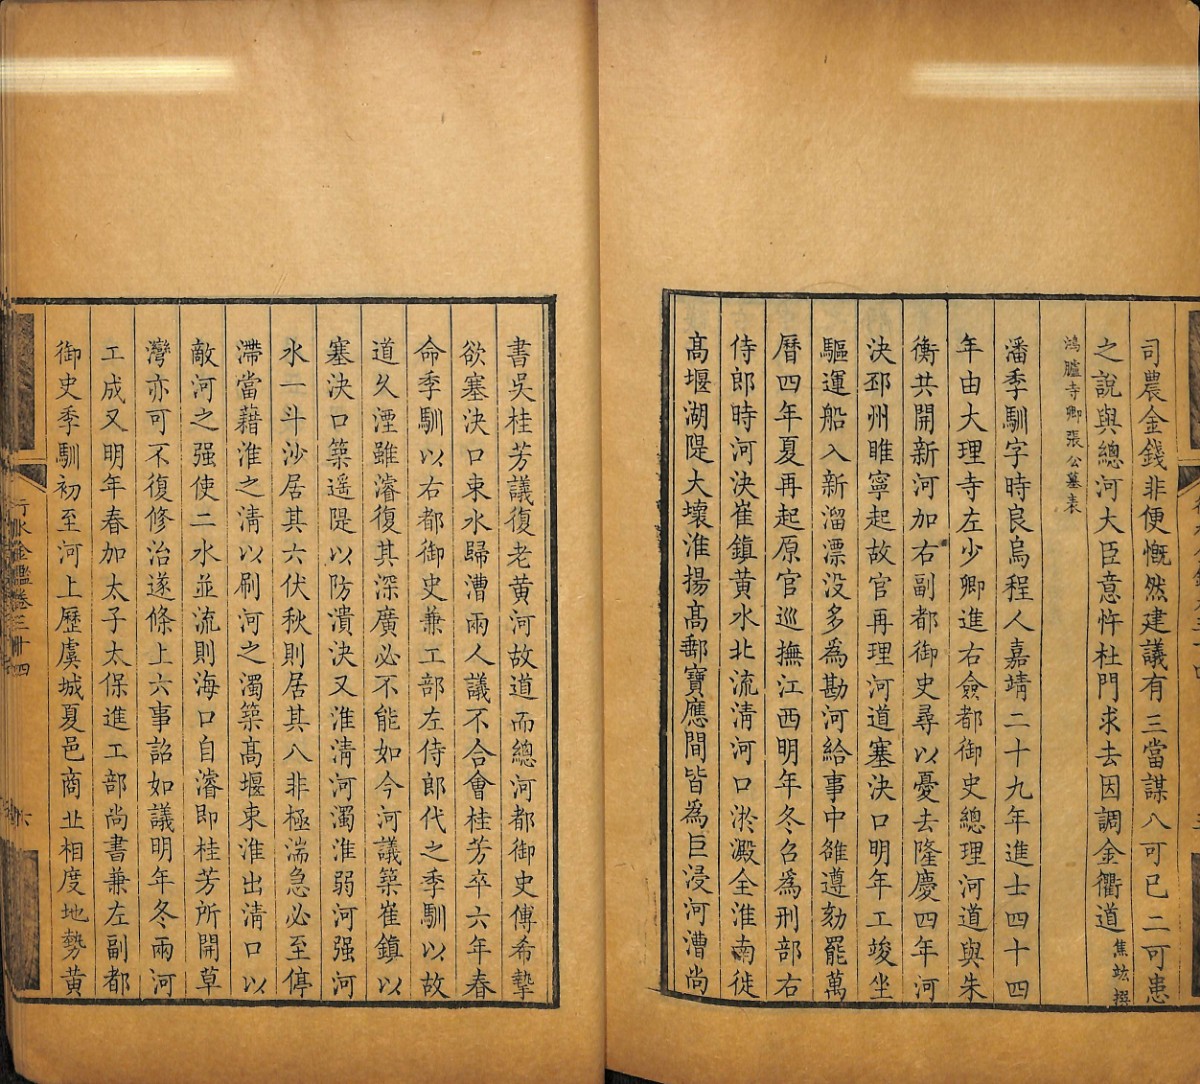 司農金錢非便慨然建議有三當謀八可已二可患
之說與總河大臣意忤杜門求去因調金衢道焦竑撰
鴻臚寺卿張公墓表
潘季馴字時良烏程人嘉靖二十九年進士四十四
年由大理寺左少卿進右僉都御史總理河道與朱
衡共開新河加右副都御史尋以憂去隆慶四年河
決邳州睢寧起故官再理河道塞決口明年工竣坐
驅運船入新溜漂没多為勘河給事中雒遵劾罷萬
曆四年夏再起原官巡撫江西明年冬召為刑部右
侍郎時河決崔鎮黃水北流淸河口淤澱全淮南徙
髙堰湖隄大壞淮揚髙郵寶應間皆為巨浸河漕尚
書吳桂芳議復老黃河故道而總河都御史傅希摯
欲塞決口束水歸漕兩人議不合會桂芳卒六年春
命季馴以右都御史兼工部左侍郎代之季馴以故
道久湮雖濬復其深廣必不能如今河議築崔鎮以
塞決口築遥隄以防潰決又淮淸河濁淮弱河强河
水一斗沙居其六伏秋則居其八非極湍急必至停
滯當藉淮之淸以刷河之濁築髙堰束淮出淸口以
敵河之强使二水並流則海口自濬即桂芳所開草
灣亦可不復修治遂條上六事詔如議明年冬兩河
工成又明年春加太子太保進工部尚書兼左副都
御史季馴初至河上歷虞城夏邑商丘相度地勢黃
行水金鑑卷三十四
六